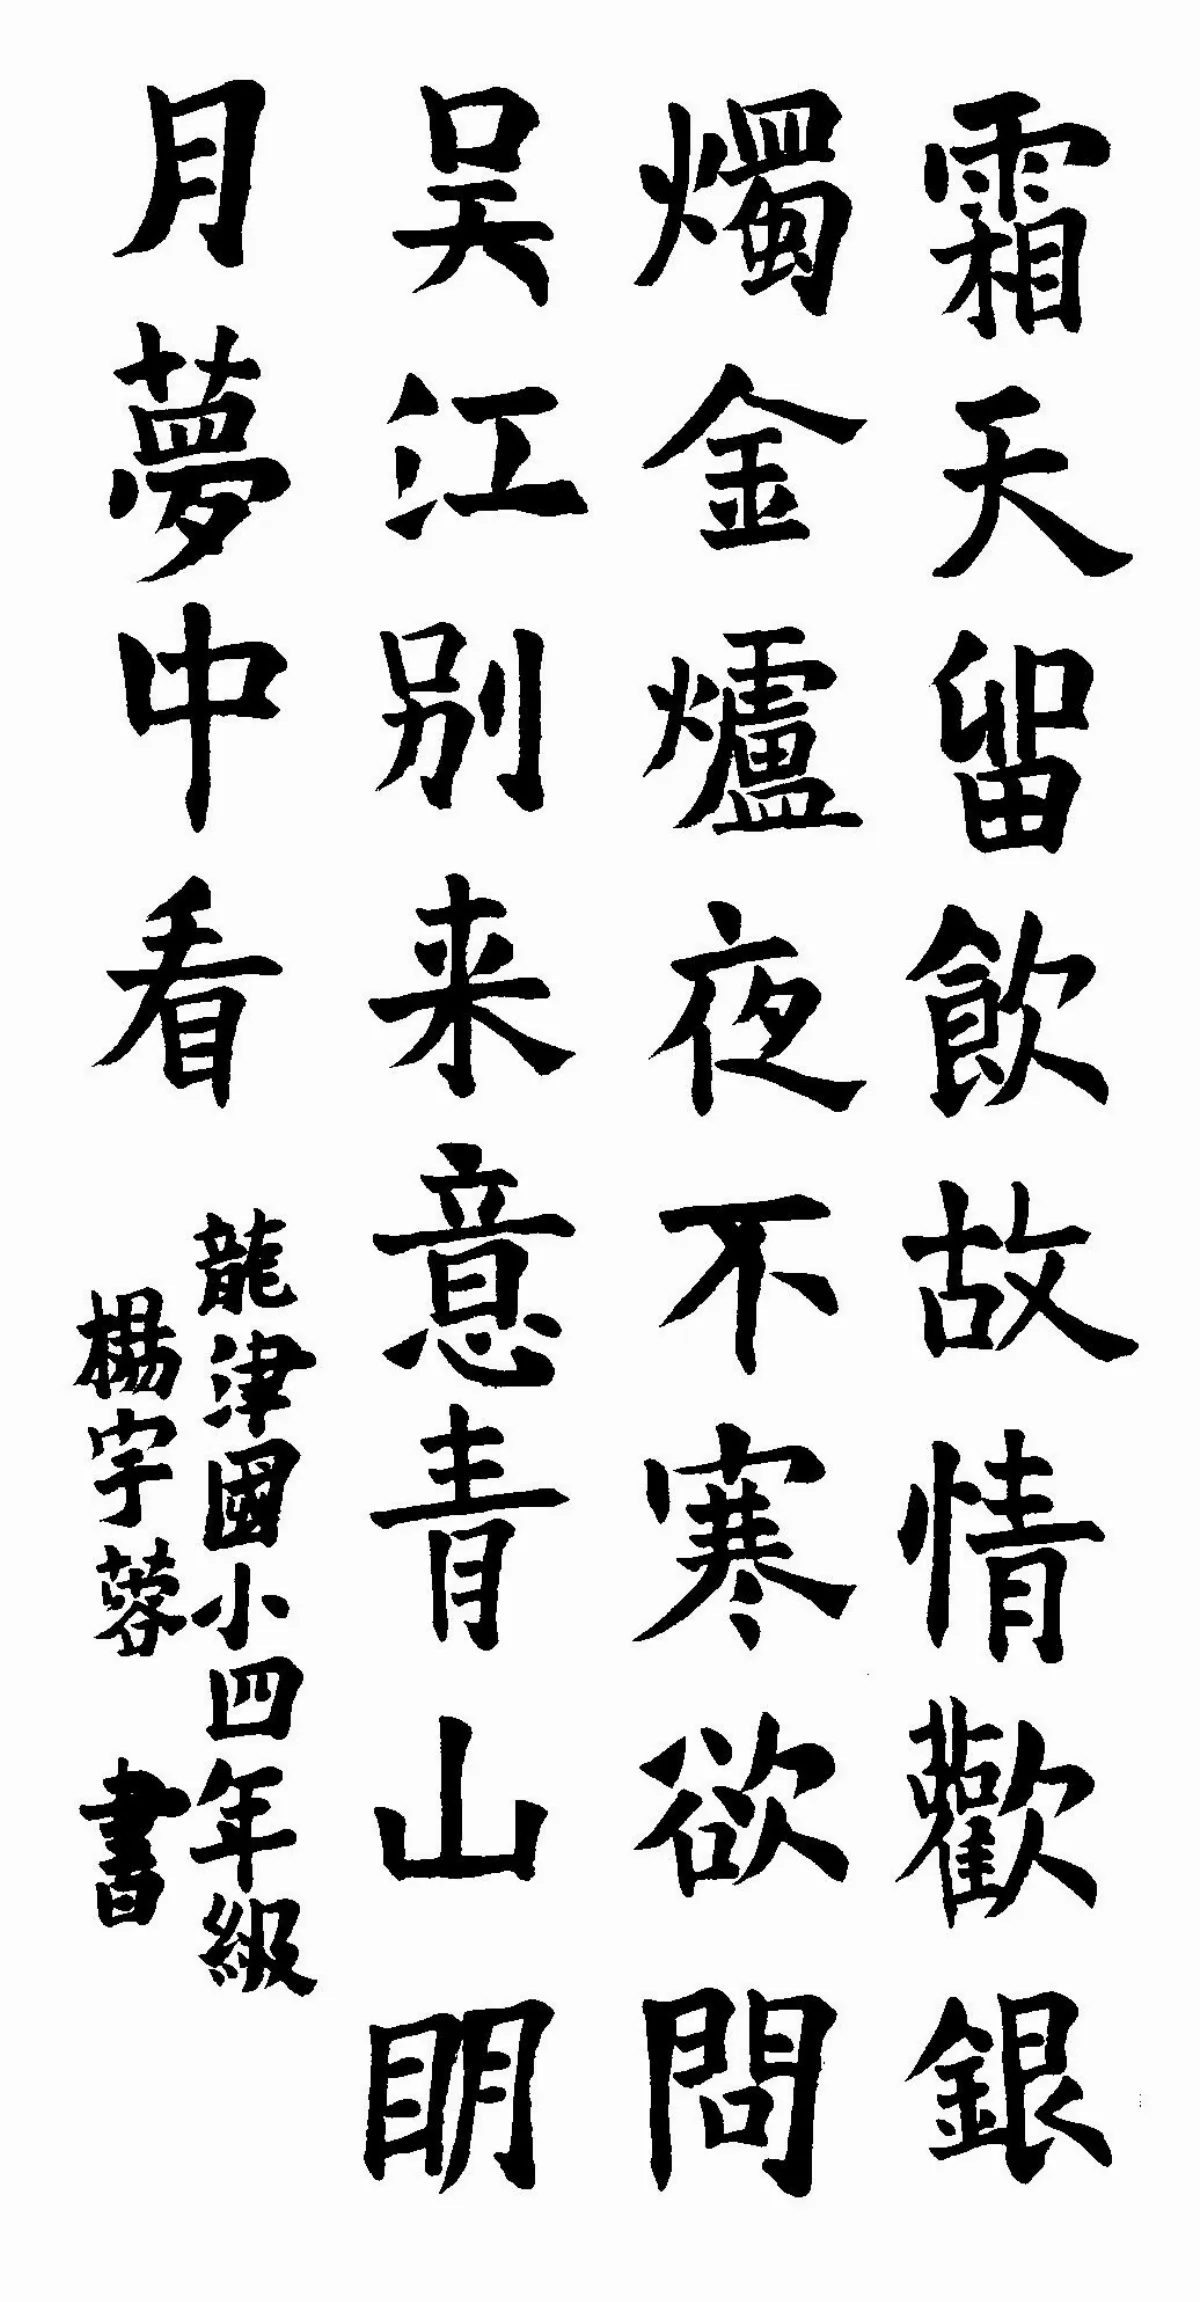 霜天留飲故情歡銀
燭金爐夜不寒欲問
吳江別来意青山明
月夢中看
龍津國小四年級
楊宇蓉 書